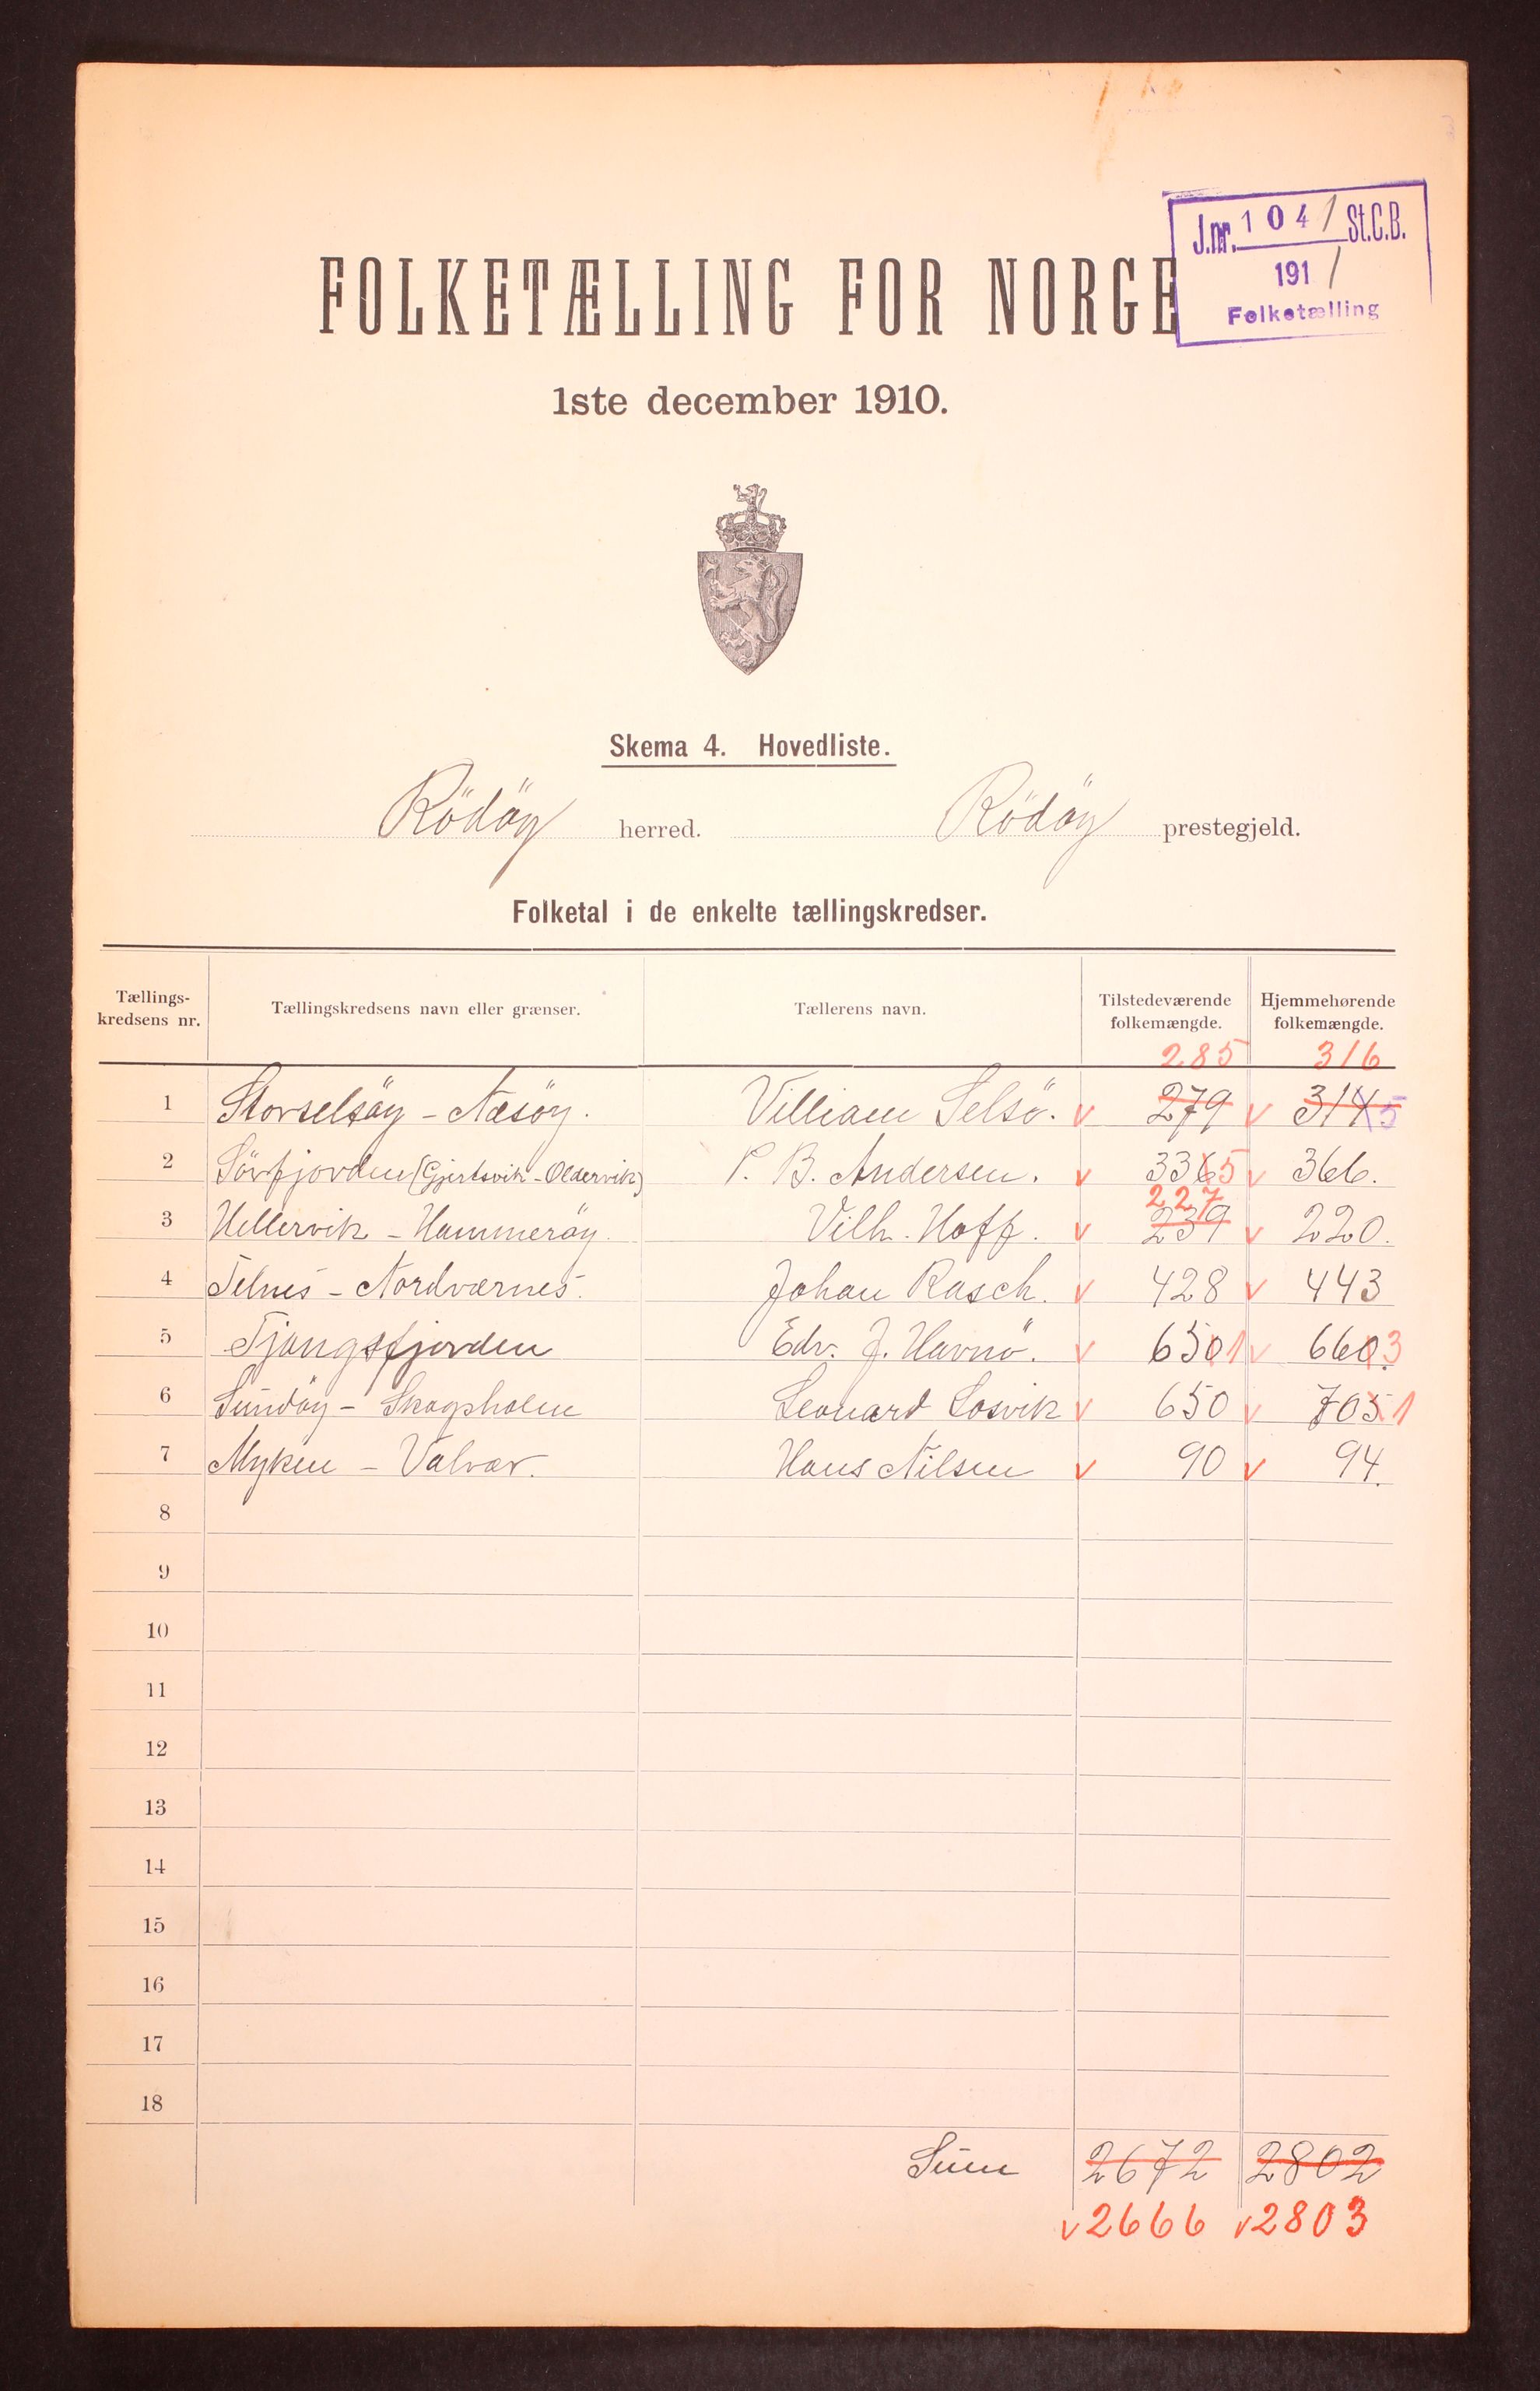 J.nr. 1041 St.C.B.
1911
Folketælling
FOLKETÆLLING FOR NORGE
1ste december 1910.
Skema 4. Hovedliste.
Rödöy herred. Rödöy prestegjeld.
Folketal i de enkelte tællingskredser.
Tællings-kredsens nr. Tællingskredsens navn eller grænser. Tællerens navn. Tilstedeværende folkemængde. Hjemmehørende folkemængde.
285 316
1 Storselsöy - Næsöy. Villiam Selsö. v 279 v 3145
2 Sörfjorden (Gjertsvik - Oldervik) P. B. Andersen. v 3365 v 366.
227
3 Hellervik - Hammeröy. Vilh. Hoff. v 239 v 220.
4 Telnes - Nordværnes. Johan Rasch. v 428 v 443
5 Tjongsfjorden Edv. J. Havnö. v 6501 v 6603
6 Sundöy - Skogsholm Leonard Losvik v 650 v 7051
7 Myken - Valvær. Hans Nilsen v 90 v 94.
8
9
10
11
12
13
14
15
16
17
18
Sum 2672 2802
v 2666 v 2803